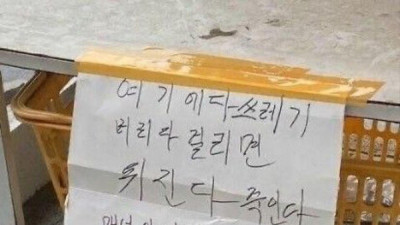 여기에다 쓰레기
버리다 걸리면
뒤진다 죽인다